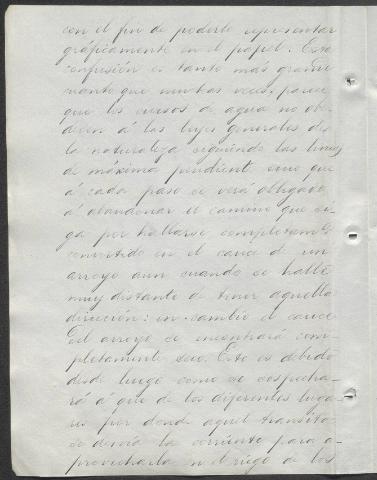 con el fin de poderlo representar
gráficamente en el papel. Esta
confusión es tanto más grande
cuanto que muchas veces, parece
que los cursos de agua no obe-
decen á las leyes generales de
la naturaleza siguiendo las lineas
de máxima pendiente sino que
á cada paso se verá obligado
á abandonar el camino que si-
ga por hallarse completamte
convertido en el cauce de un
arroyo aun cuando se halle
muy distante de tener aquella
dirección: en cambio el cauce
del arroyo se encontrará com-
pletamente seco. Esto es debido
desde luego como se sospecha-
rá á que de los diferentes luga-
res por donde aquel transita
se desvia la corriente para a-
provecharla en el riego de los